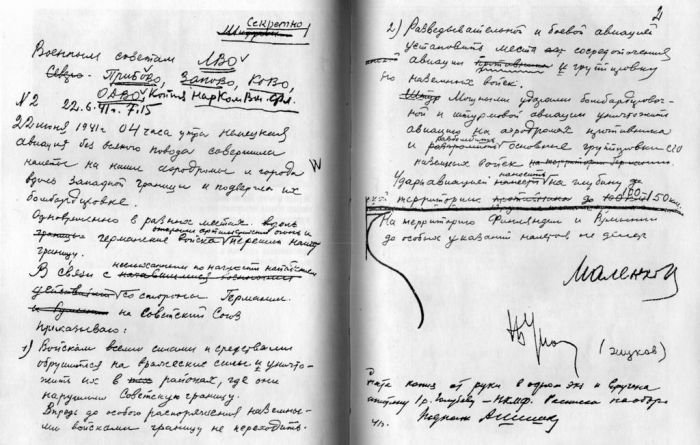 Секретно
Шифром!
Военным советам ЛВО
Севзо. Прибово, Запово, Ково,
Одво, Копия НарКом Вм. Фл.
N 2 22.6.41г. 7.15
22 июня 1941г 04 часа утра немецкая
авиация без всякого повода совершила
налеты на наши аэродромы и города
вдоль западной границы и подвергла их
бомбардировке.
Одновременно в разных местах вдоль
открыли артиллерийский огонь и
границы германские войска перешли нашу
границу.
неслыханным по наглости нападением
В связи с
действиями со стороны Германии
и Румынии на Советский Союз
приказываю:
1) Войскам всеми силами и средствами
обрушиться на вражеские силы и уничто-
жить их в районах, где они
нарушили Советскую границу.
Впредь до особого распоряжения наземны-
ми войсками границу не переходить.
2
2) Разведывательной и боевой авиацией
установить места сосредоточения
авиации противника и группировку
его наземных войск.
Мощными ударами бомбардировоч-
ной и штурмовой авиации уничтожить
авиацию на аэродромах противника
и разбомбить основные группировки его
наземных войск на территории Германии.
Удары авиацией наносить на глубину
территории противника до 100-150 км.
На территорию Финляндии и Румынии
до особых указаний налетов не делать
Маленков
(Жуков)
копия от руки в одном экз и вручена